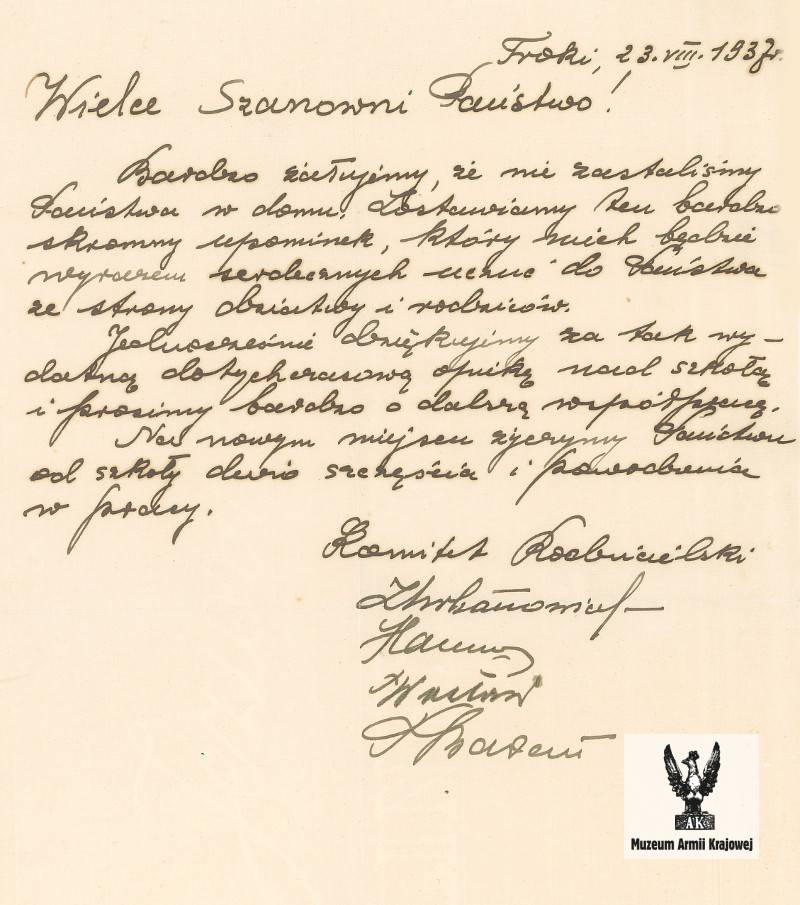 Troki, 23.VIII.1937r.
Wielce Szanowni Państwo!
Bardzo żałujemy, że nie zastaliśmy
Państwa w domu. Zostawiamy ten bardzo
skromny upominek, który niech będzie
wyrazem serdecznych uczuć do Państwa
ze strony dziatwy i rodziców.
Jednocześnie dziękujemy za tak wy-
datną dotychczasową opiekę nad szkołą
i prosimy bardzo o dalszą współpracę.
Na nowym miejscu życzymy Państwu
od szkoły dużo szczęścia i powodzenia
w pracy.
Komitet Rodzicielski
AK
Muzeum Armii Krajowej